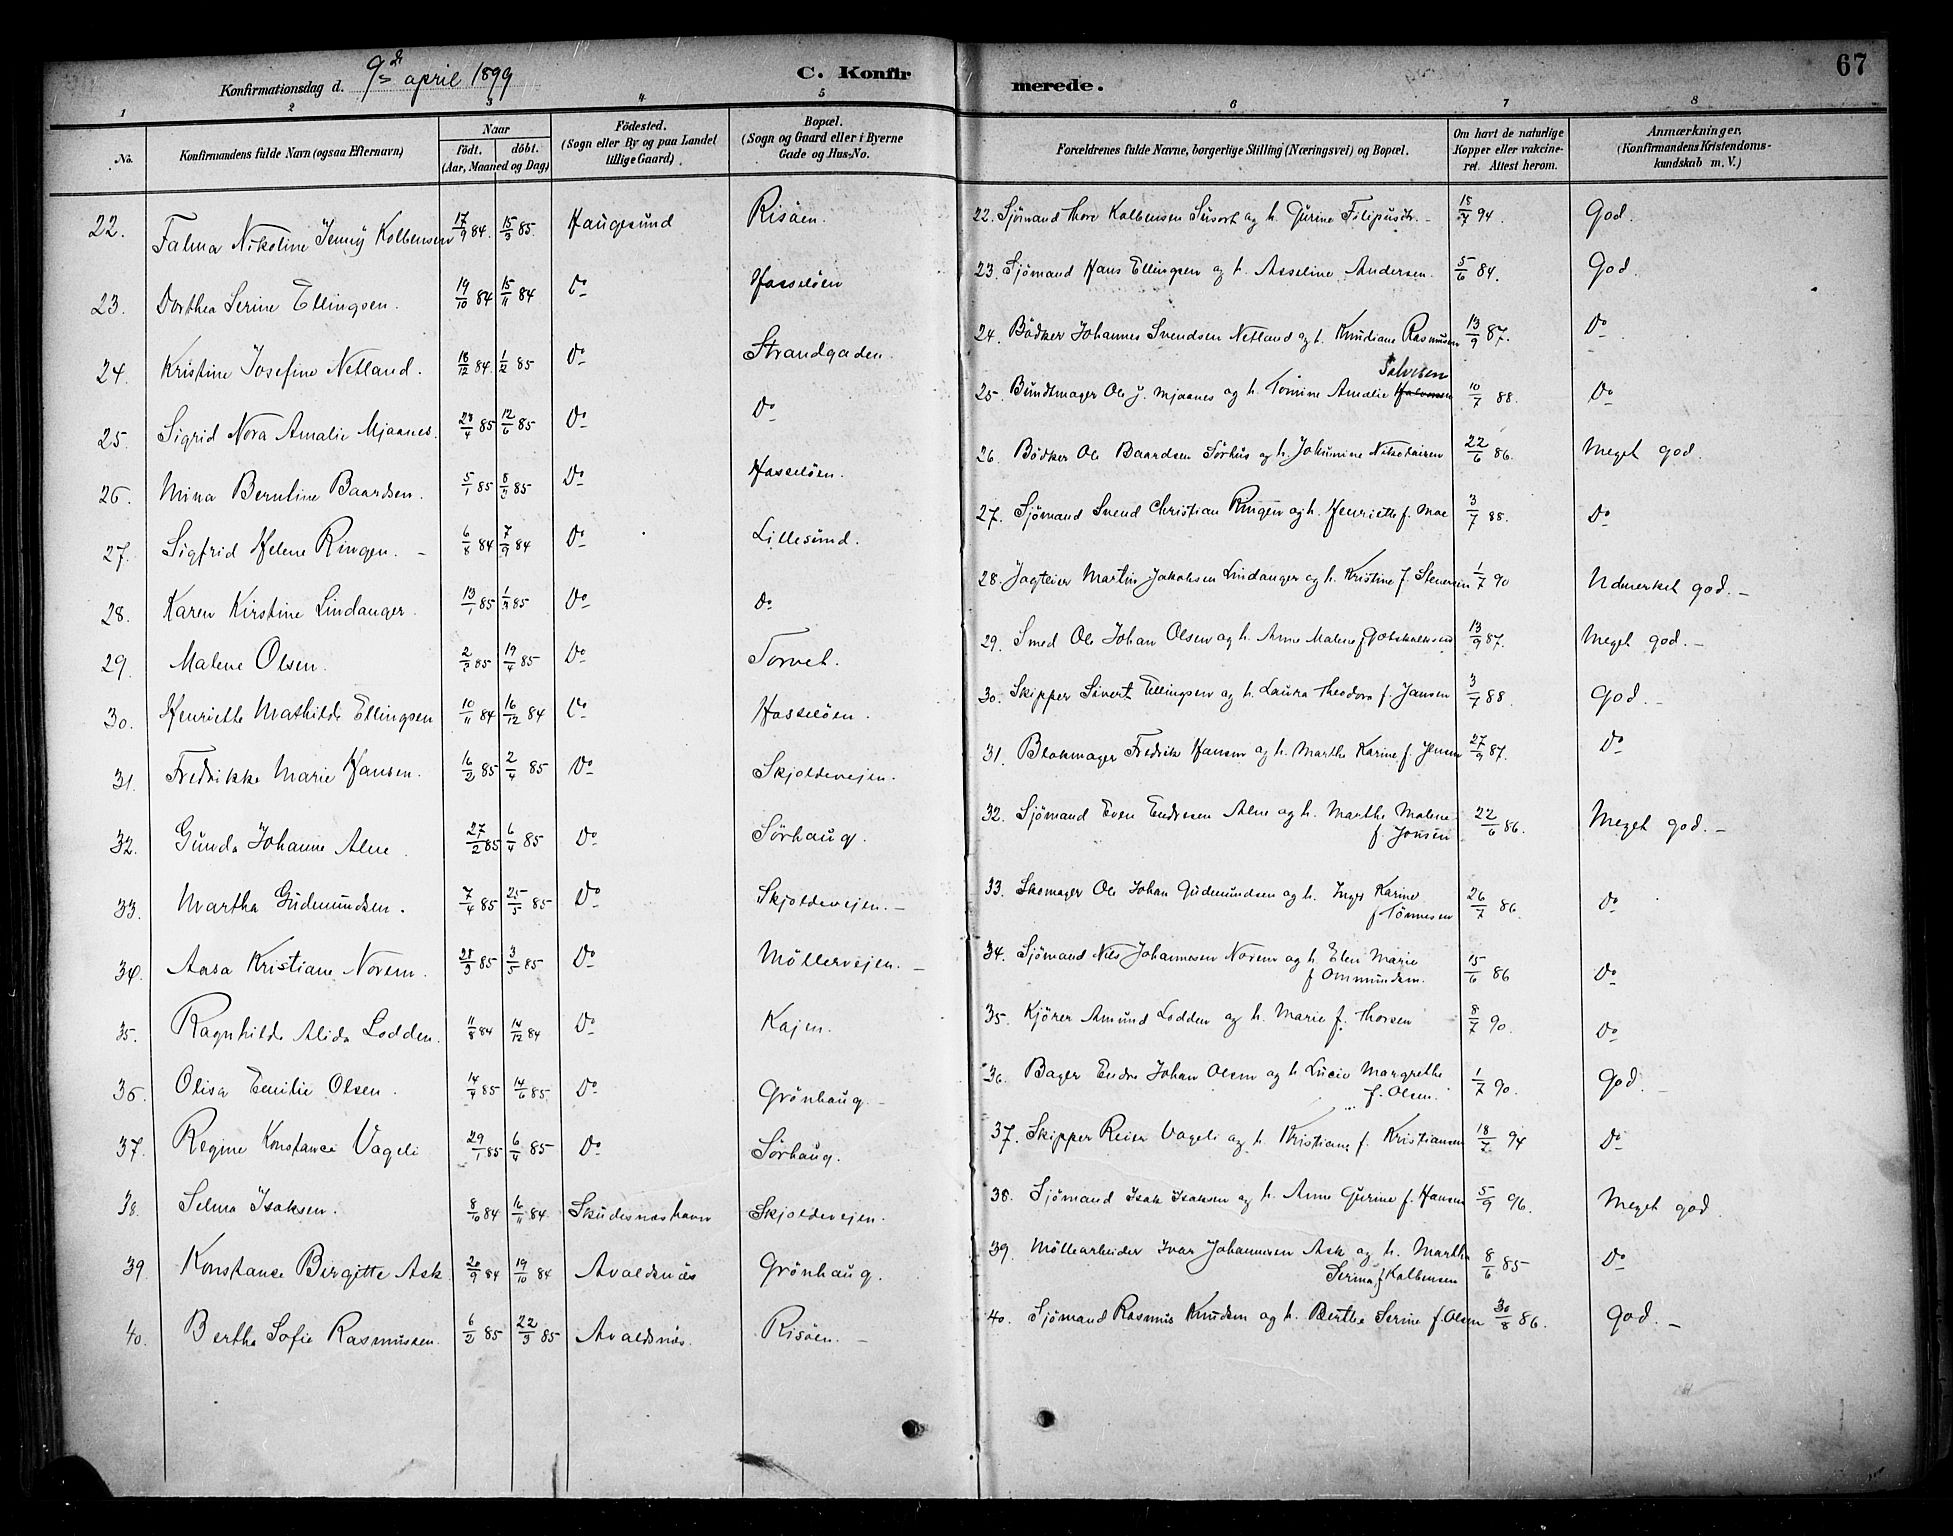 67
Konfirmationsdag d. 9de april 1899
C. Konfirmerede.
1 2 3 4 5 6 7 8
No. Konfirmandens fulde Navn (ogsaa Efternavn) Naar födt. döbt. (Aar, Maaned og Dag) Födested. (Sogn eller By og paa Landet tillige Gaard) Bopæl. (Sogn og Gaard eller i Byerne Gade og Hus-No. Forældrenes fulde Navne, borgerlige Stilling (Næringsvei) og Bopæl. Om havt de naturlige Kopper eller vakcineret. Attest herom. Anmærkninger, (Konfirmandens Kristendomskundskab m. V.)
22. Falma Nikoline Jenny Kolbensen 17/9 84. 15/3 85. Haugesund Risöen. 22. Sjömand Thore Kolbensen Susort og h. Gurine Filipusdtr. 15/7 94. God.
23. Dorthea Serine Ellingsen. 19/10 84 15/11 84 Do Hasselöen 23. Sjömand Hans Ellingsen og h. Asseline Andersen. 5/6 84. God.
24. Kristine Josefine Netland. 18/12 84. 1/2 85 Do Strandgaden. 24. Bödker Johannes Svendsen Netland og h. Knudiane Rasmusen 13/9 87. Do
25. Sigrid Nora Amalie Mjaanes. 28/4 85 12/6 85 Do Do 25. Bundtmager Ole J. Mjaanes og h. Tomine Amalie Salvesen 10/7 88. Do
26. Mina Berntine Baardsen. 5/1 85 85 Do Hasselöen. 26. Bödker Ole Baardsen Sörhus og h. Johannine 22/6 86. Meget god.
27. Sigfrid Helene Ringen. 6/8 84 7/9 84 Do Lillesund. 27. Sjömand Svend Christian Ringen og h. Henriette f. Moe 3/7 88. Do
28. Karen Kirstine Lindanger. 13/1 85 85 Do Do 28. Jagteier Martin Jakobsen Lindanger og h. Kristine f. Stenersen 1/7 90 Udmerket god.
29. Malene Olsen. 2/3 85 19/4 85 Do Torvet. 29. Smed Ole Johan Olsen og h. Anne Malene f. 13/9 87. Meget god.
30. Henriette Mathilde Ellingsen 10/11 84 16/12 84 Do Hasselöen. 30. Skipper Sivert Ellingsen og h. Laura Theodora f. Jansen 3/7 88 God.
31. Fredrikke Marie Hansen. 16/2 85 2/4 85 Do Skjoldevejen. 31. Blokmager Fredrik Hansen og h. Marthe Karine f. Jensen 27/9 87. Do
32. Gunda Johanne Alne. 27/2 85 6/4 85 Do Sörhaug. 32. Sjömand Even Endresen Alne og h. Marthe Malene f. Jonsen 22/6 86. Meget god.
33. Martha Gudmundsen. 7/4 85 25/5 85 Do Skjoldevejen. 33. Skomager Ole Johan Gudmundsen og h. Inger Karine f Tönnesen 26/7 86. Do
34. Aasa Kristiane Norem. 28/3 85 3/5 85 Do Möllervejen. 34. Sjömand Nils Johannesen Norem og h. Elen Marie f Ommundsen. 15/6 86 Do
35. Ragnhilde Alida Lodden. 11/8 84 14/12 84 Do Kajen. 35. Kjörer Amund Lodden og h. Marie f. Thorsen 8/7 90. Do
36. Olisa Emilie Olsen. 14/4 85 14/6 85 Do Grönhaug. 36. Bager Endre Johan Olsen og h. Lucie Margrethe f. Olsen. 1/7 90. God.
37. Regine Konstance Vageli 29/1 85 6/4 85 Do Sörhaug. 37. Skipper Reier Vageli og h. Kristiane f. Kristiansen 18/7 94 Do
38. Selma Isaksen. 84 16/11 84. Skudesnæshavn Skjoldevejen. 38. Sjömand Isak Isaksen og h. Anne Gurine f. Hansen 5/9 96. Meget god.
39. Konstanse Birgitte Ask. 20/9 84 19/10 84 Avaldsnæs Grönhaug. 39. Möllearbeider Ivar Johannesen Ask og h. Martha Serina f Kolbensen 8/6 85 Do
40. Bertha Sofie Rasmussen. 6/2 85 22/3 85 Avaldsnæs. Risöen. 40. Sjömand Rasmus Knudsen og h. Berthe Serine f. Olsen 30/8 86. God.